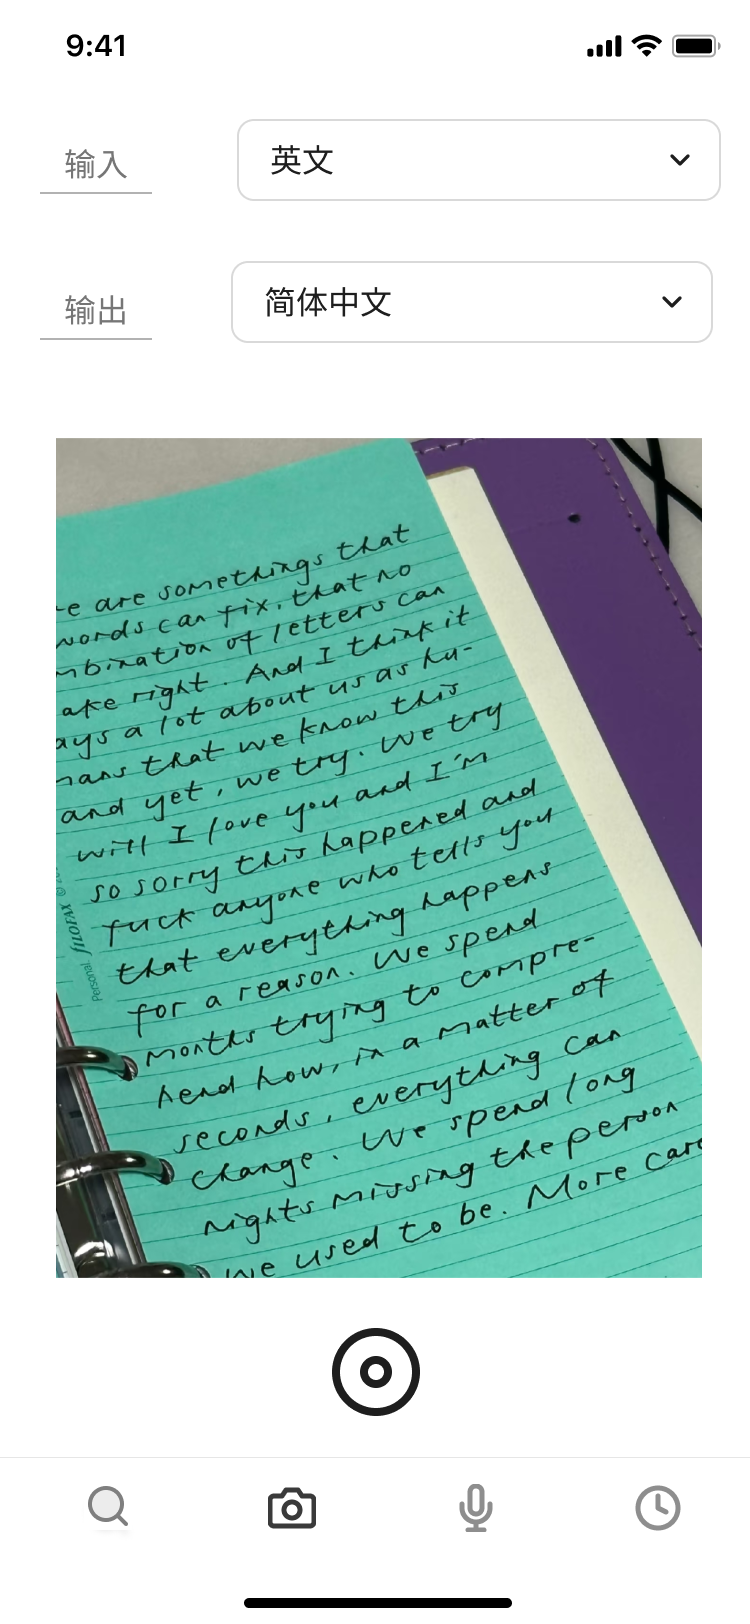 9:41
输入
英文
输出
简体中文
e are somethings that
words can fix, that no
mbination of letters can
ake right. And I think it
ays a lot about us as hu-
mans that we know this
and yet, we try. We try
with I love you and I'm
so sorry this happened and
fuck anyone who tells you
that everything happens
for a reason. We spend
months trying to compre-
hend how, in a matter of
seconds, everything can
change. We spend long
nights missing the person
we used to be. More care
Personal filofax ©